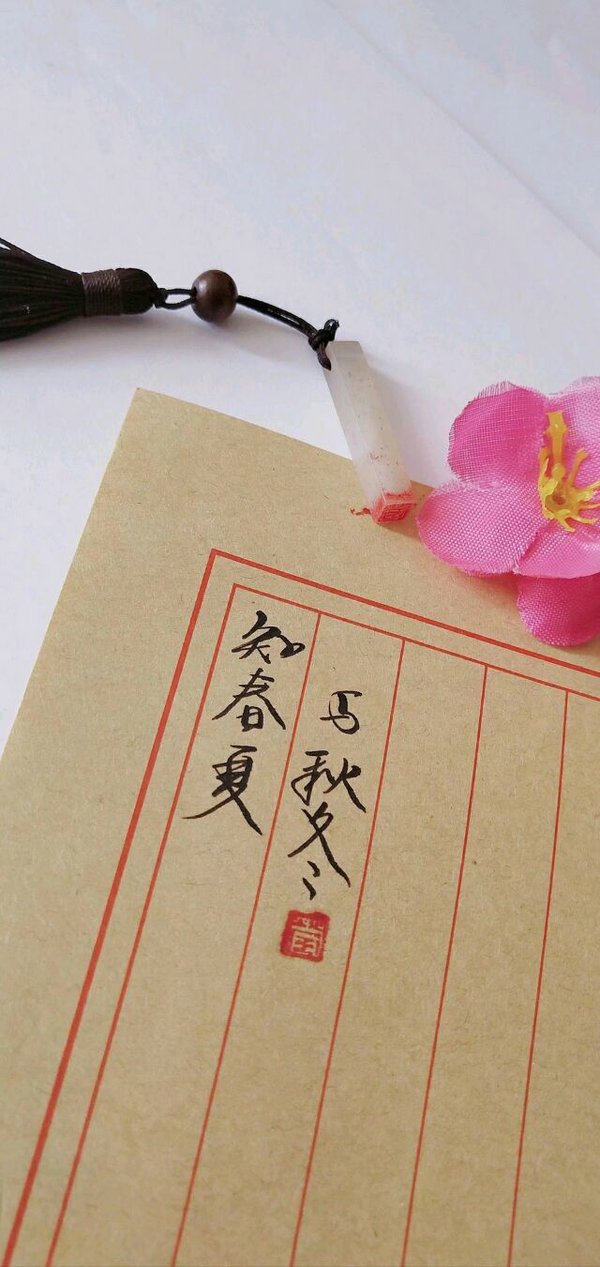 知春夏
与秋冬